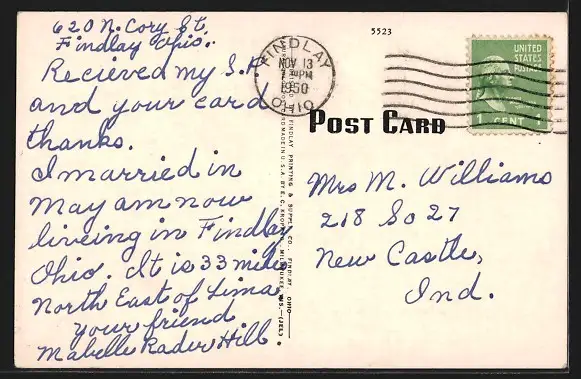 620 N. Cory St.
Findlay Ohio.
Recieved my S.K.
and your card
thanks.
I married in
May am now
liveing in Findlay
Ohio. It is 33 miles
North East of Lima
your friend
Mabelle Rader Hill
5523
FINDLAY
NOV 13
PM
1950
OHIO
UNITED
STATES
POSTAGE
1 CENT 1
POST CARD
Mrs M. Williams
218 So 27
New Castle,
Ind.
FINDLAY PRINTING & SUPPLY CO., FINDLAY, OHIO
MADE IN U.S.A. BY E. C. KROPP CO., MILWAUKEE, WIS.—(JEL)